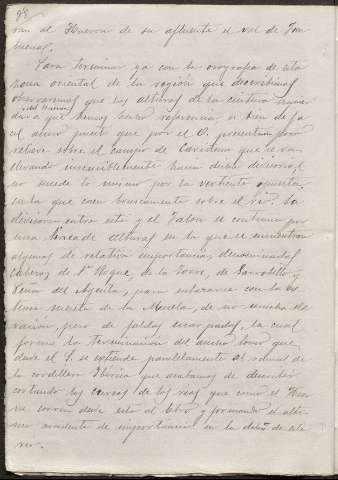 98
ran al Huerva de su afluente el val de Tom
buenas.
Para terminar ya con la orografia de esta
zona oriental de la región que describimos
observaremos que las alturas de la cintura izquier
del Huerva
da a que hemos hecho referencia, si bien de fa
cil aluno puesto que por el O. presentan poco
relieve sobre el campo de Cariñena que se va
elevando insensiblemente hacia dicha divisoria, no
no sucede lo mismo por la vertiente opuesta
en la que caen bruscamente sobre el rio. La
divisoria entre este y el Jalón se continua por
una línea de alturas en la que se encuentran
algunas de relativa importancia, denominadas
Cabezas de Sn Roque, de la Torre, de
Peña del Aguila, para enlazarse con la es
tensa meseta de la Muela, de no mucha ele
vacion, pero de faldas escarpadas, la cual
forma la terminacion del ancho lomo que
desde el S. se estiende paralelamente al ramal de
la cordillera Ibérica que acabamos de describir
cortando los cursos de los rios que como el Huer
va corren desde esta al Ebro y formando el ultimo
accidente de importancia en la dcha de este
rio.